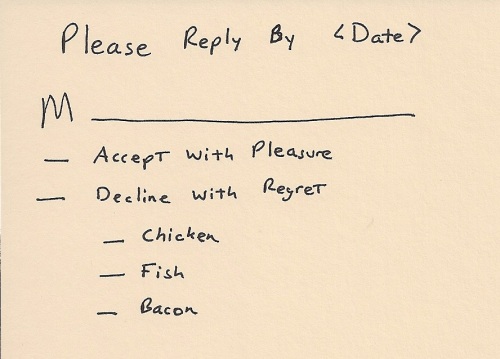 Please Reply By <Date>
M ____________________
__ Accept with Pleasure
__ Decline with Regret
__ Chicken
__ Fish
__ Bacon